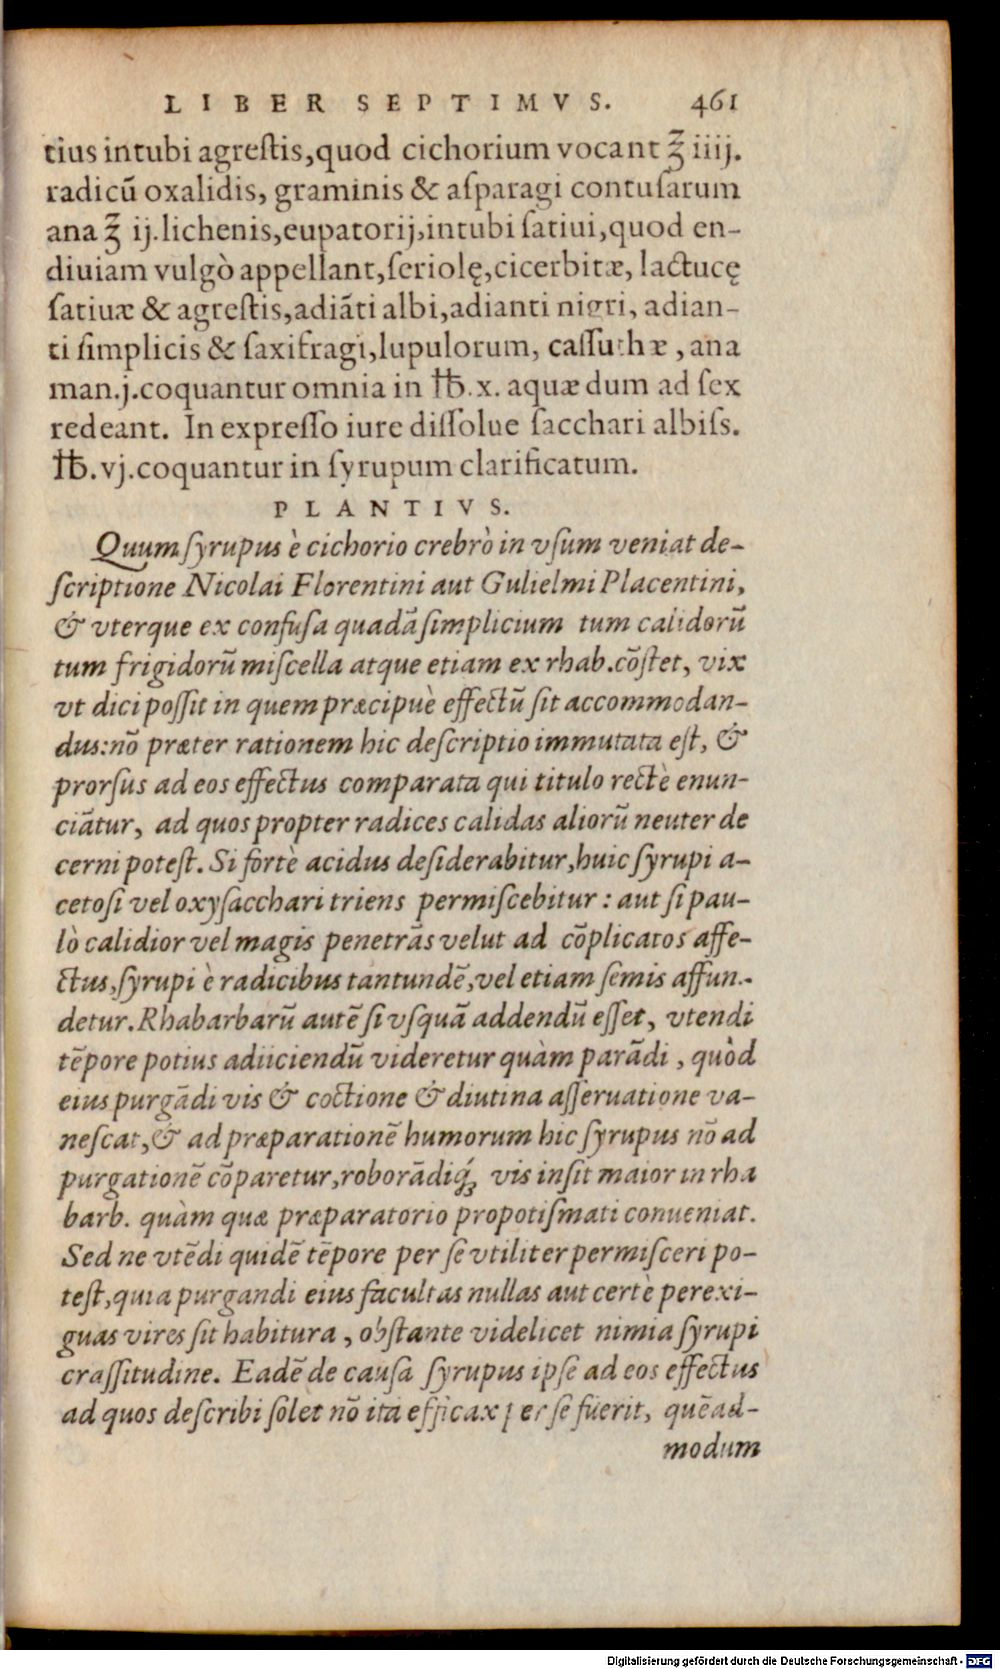 LIBER SEPTIMVS. 461
tius intubi agreſtis,quod cichorium vocant ℥ iiij.
radicū oxalidis, graminis & aſparagi contuſarum
ana ℥ ij.lichenis,eupatorij,intubi ſatiui,quod en-
diuiam vulgò appellant,ſeriolę,cicerbitæ, lactucę
ſatiuæ & agreſtis,adiāti albi,adianti nigri, adian-
ti ſimplicis & ſaxifragi,lupulorum, caſſuthæ, ana
man.j.coquantur omnia in ℔.x. aquæ dum ad ſex
redeant. In expreſſo iure diſſolue ſacchari albiſs.
℔.vj.coquantur in ſyrupum clarificatum.
PLANTIVS.
Quum ſyrupus è cichorio crebrò in vſum veniat de-
ſcriptione Nicolai Florentini aut Gulielmi Placentini,
& vterque ex confuſa quadā ſimplicium tum calidorū
tum frigidorū miſcella atque etiam ex rhab.cōſtet, vix
vt dici poſſit in quem præcipuè effectū ſit accommodan-
dus:nō præter rationem hic deſcriptio immutata eſt, &
prorſus ad eos effectus comparata qui titulo rectè enun-
ciātur, ad quos propter radices calidas aliorū neuter de
cerni poteſt. Si fortè acidus deſiderabitur,huic ſyrupi a-
cetoſi vel oxyſacchari triens permiſcebitur : aut ſi pau-
lò calidior vel magis penetrās velut ad cōplicatos affe-
ctus,ſyrupi è radicibus tantundē,vel etiam ſemis affun-
detur.Rhabarbarū autē ſi vſquā addendū eſſet, vtendi
tēpore potius adiiciendū videretur quàm parādi, quòd
eius purgādi vis & coctione & diutina aſſeruatione va-
neſcat,& ad præparationē humorum hic ſyrupus nō ad
purgationē cōparetur,roborādiq́; vis inſit maior in rha
barb. quàm quæ præparatorio propotiſmati conueniat.
Sed ne vtēdi quidē tēpore per ſe vtiliter permiſceri po-
teſt,quia purgandi eius facultas nullas aut certè perexi-
guas vires ſit habitura, obſtante videlicet nimia ſyrupi
craſſitudine. Eadē de cauſa ſyrupus ipſe ad eos effectus
ad quos deſcribi ſolet nō ita efficax per ſe fuerit, quēad-
modum
Digitalisierung gefördert durch die Deutsche Forschungsgemeinschaft - DFG